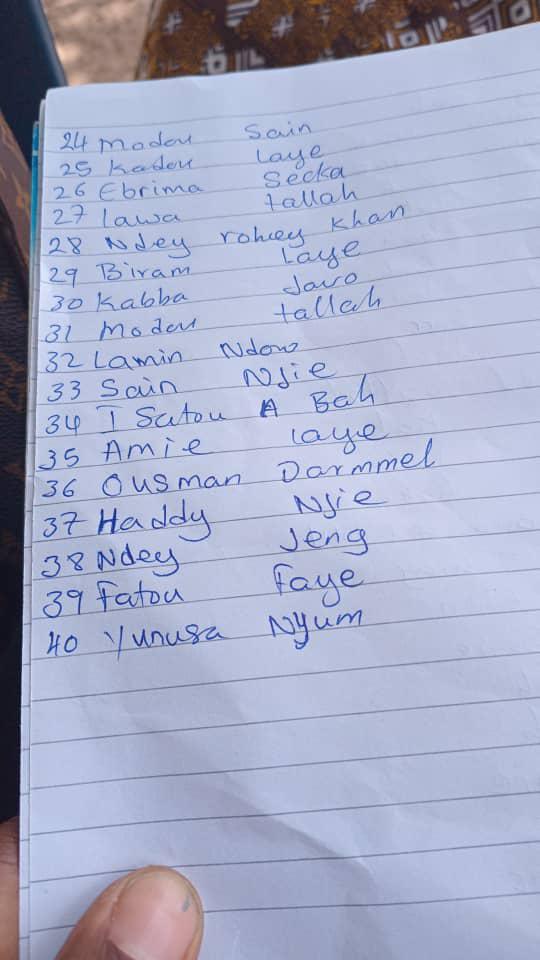 24 Modou Sain
25 Kadou Laye
26 Ebrima Secka
27 Lawa tallah
28 Ndey rohey Khan
29 Biram Laye
30 Kabba Jawo
31 Modou tallah
32 Lamin Ndow
33 Sain Njie
34 I Satou A Bah
35 Amie Laye
36 Ousman Darmmel
37 Haddy Njie
38 Ndey Jeng
39 Fatou Faye
40 Yunusa Nyum